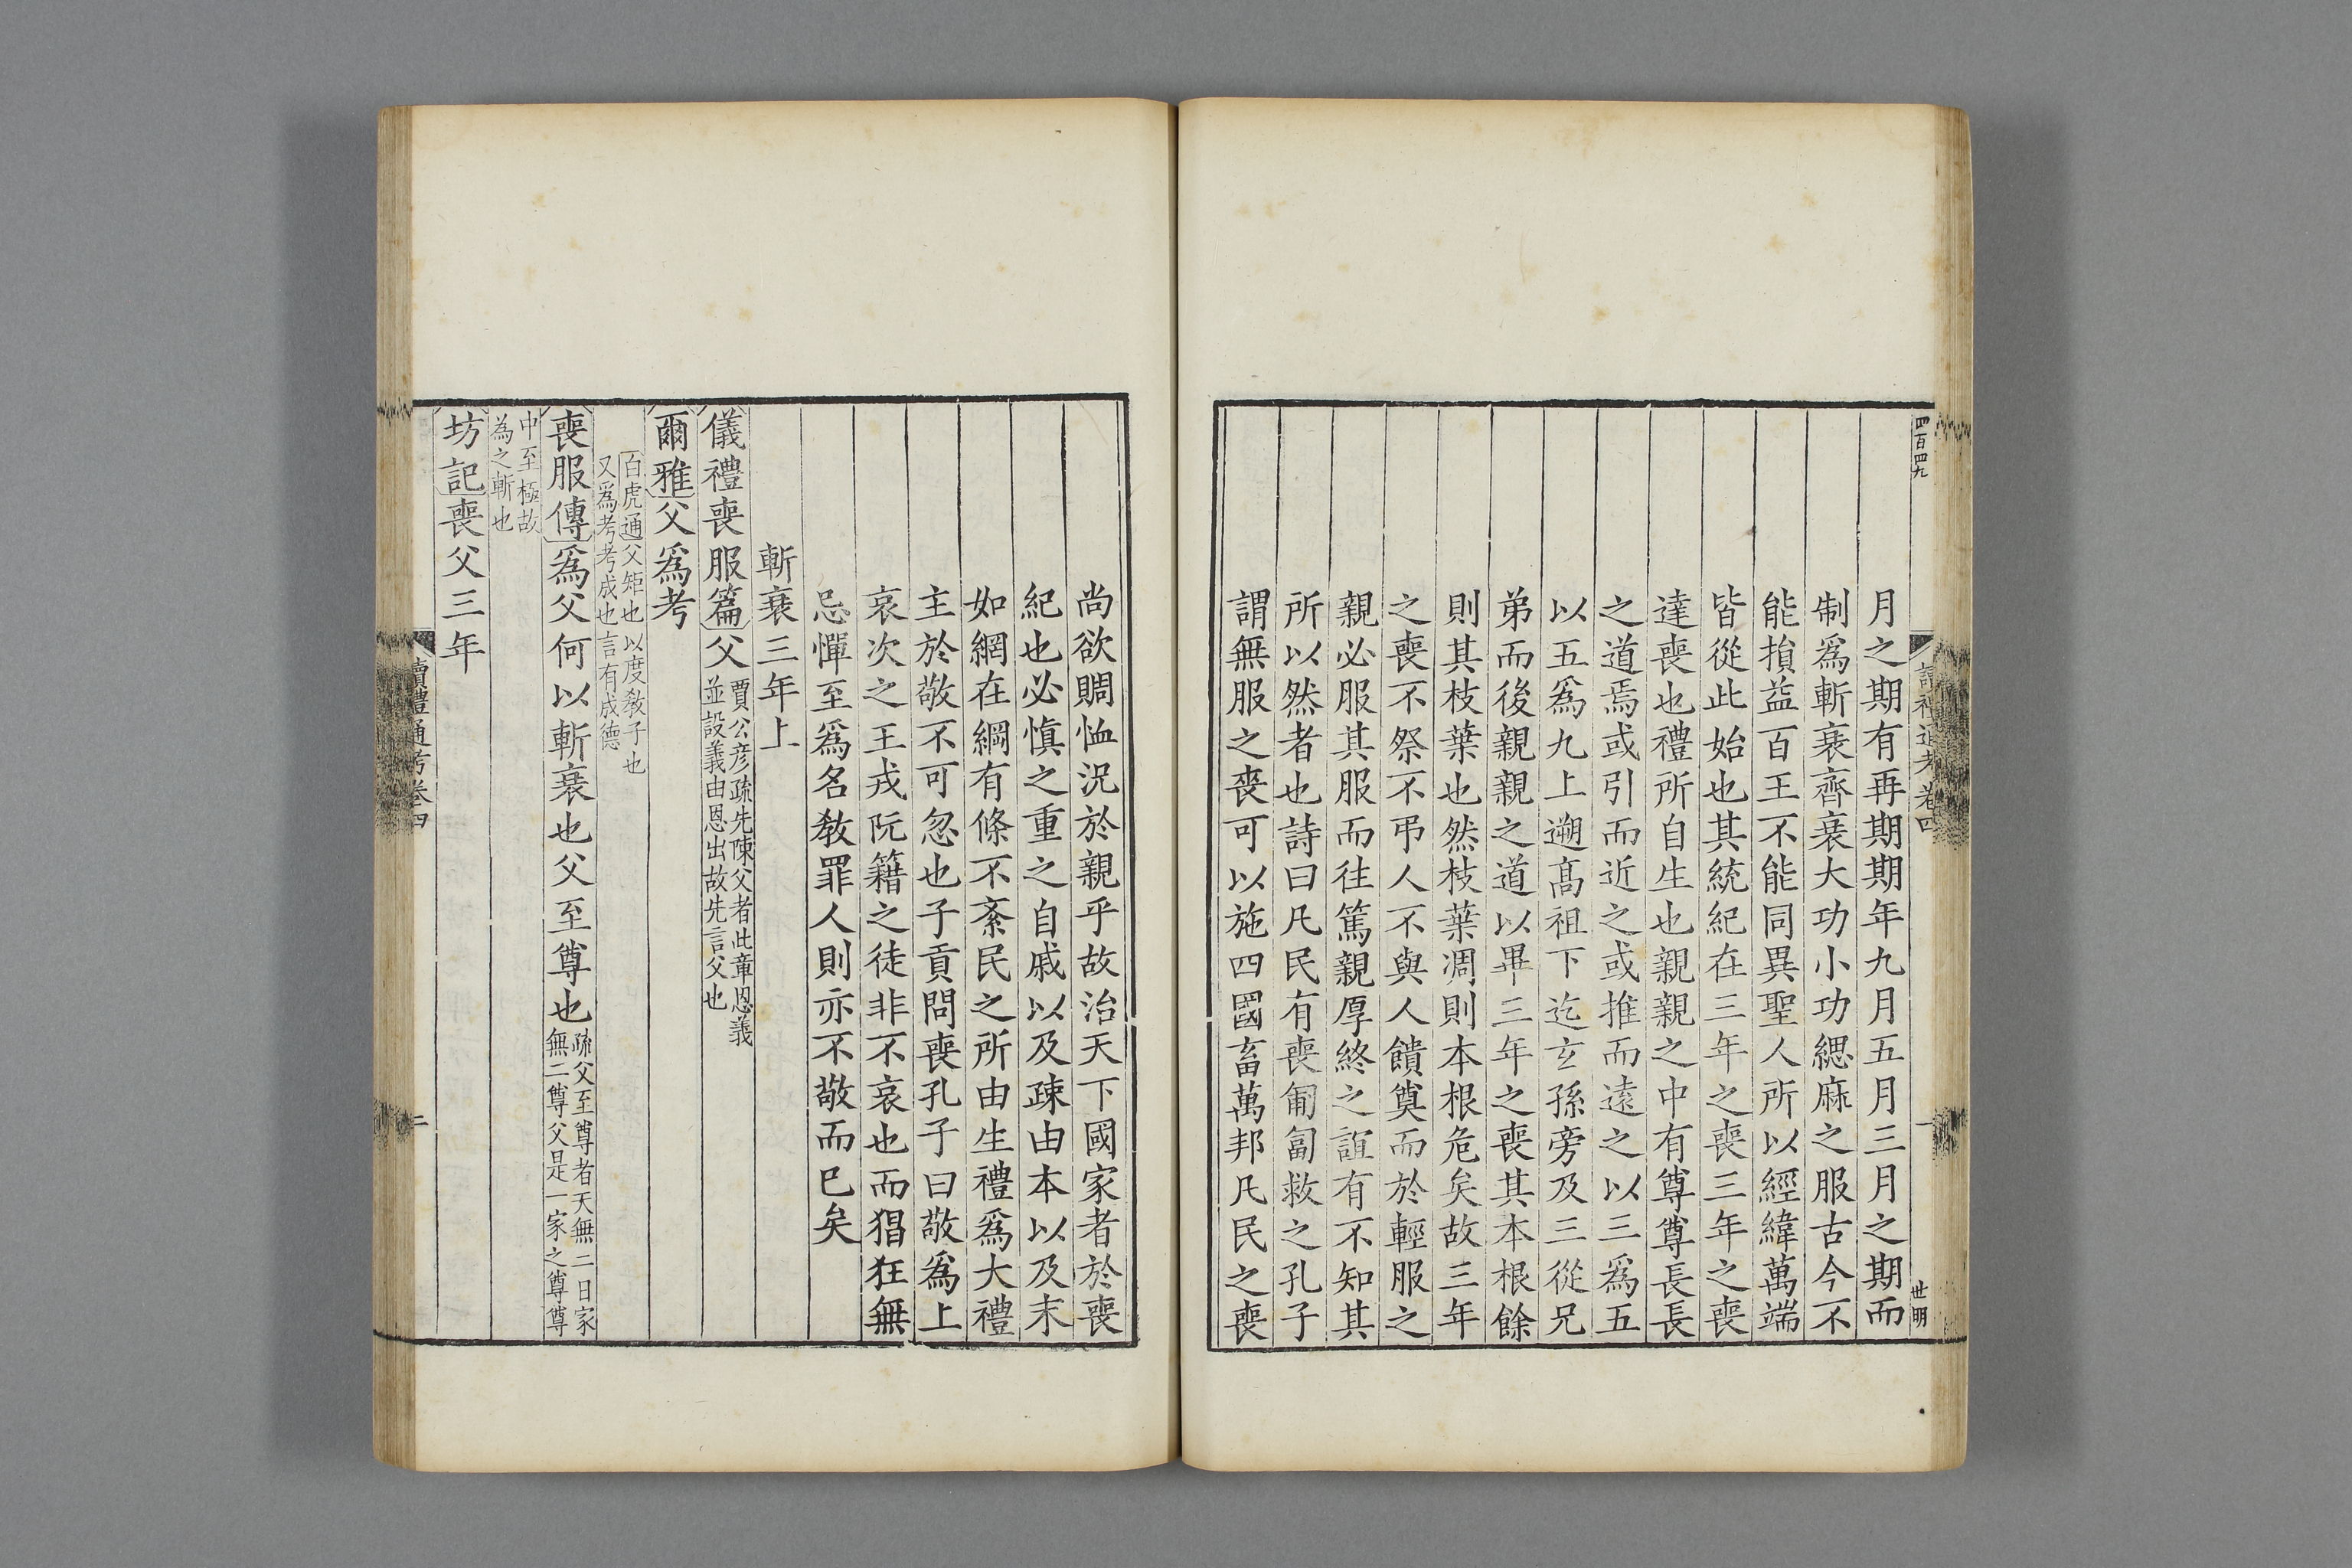 四百四九
讀禮通考卷四
一
世明
月之期有再期期年九月五月三月之期而
制爲斬衰齊衰大功小功緦麻之服古今不
能損益百王不能同異聖人所以經緯萬端
皆從此始也其統紀在三年之喪三年之喪
達喪也禮所自生也親親之中有尊尊長長
之道焉或引而近之或推而遠之以三爲五
以五爲九上遡髙祖下迄玄孫旁及三從兄
弟而後親親之道以畢三年之喪其本根餘
則其枝葉也然枝葉凋則本根危矣故三年
之喪不祭不弔人不與人饋奠而於輕服之
親必服其服而往篤親厚終之誼有不知其
所以然者也詩曰凡民有喪匍匐救之孔子
謂無服之喪可以施四國畜萬邦凡民之喪
尚欲賙恤況於親乎故治天下國家者於喪
紀也必愼之重之自戚以及疎由本以及末
如網在綱有條不紊民之所由生禮爲大禮
主於敬不可忽也子貢問喪孔子曰敬爲上
哀次之王戎阮籍之徒非不哀也而猖狂無
忌憚至爲名敎罪人則亦不敬而已矣
斬衰三年上
儀禮喪服篇父賈公彥疏先陳父者此章恩義
並設義由恩出故先言父也
爾雅父爲考
白虎通父矩也以度敎子也
又爲考考成也言有成德
喪服傳爲父何以斬衰也父至尊也疏父至尊者天無二日家
無二尊父是一家之尊尊
中至極故
為之斬也
坊記喪父三年
讀禮通考卷四
二